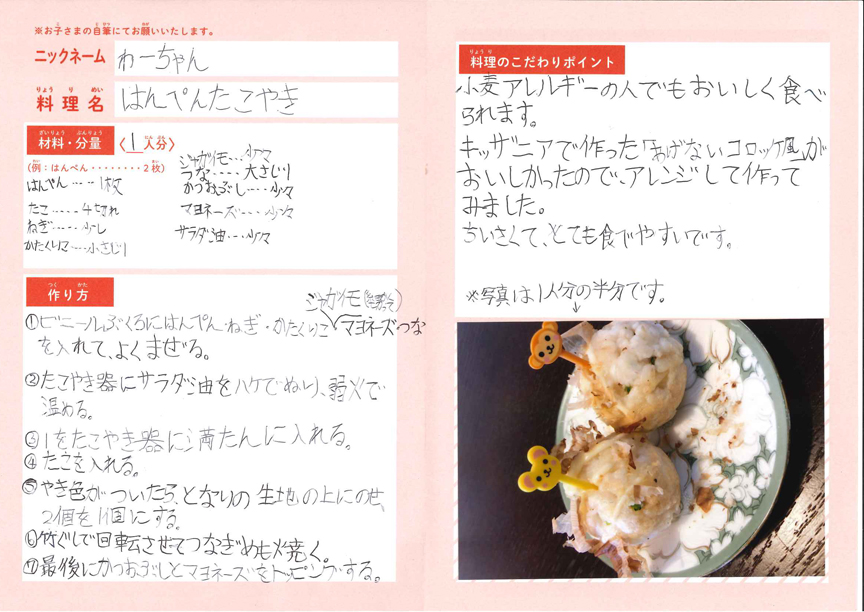 ※お子さまの自筆にてお願いいたします。
ニックネーム わーちゃん
料理名 はんぺんたこやき
材料・分量 〈1人分〉
(例：はんぺん・・・・・・・・2枚)
はんぺん・・・・1枚
たこ・・・・・4切れ
ねぎ・・・・・少し
かたくりこ・・・・小さじ1
ジャガイモ・・・少々
ツナ・・・・大さじ1
かつおぶし・・・・少々
マヨネーズ・・・少々
サラダ油・・・少々
作り方
ジャガイモ
①ビニールぶくろにはんぺん・ねぎ・かたくりこマヨネーズつな
を入れて、よくまぜる。
②たこやき器にサラダ油をハケでぬり、弱火で
温める。
③1をたこやき器に満たんに入れる。
④たこを入れる。
⑤やき色がついたら、となりの生地の上にのせ、
2個を1個にする。
⑥竹ぐしで回転させてつなぎめも焼く。
⑦最後にかつおぶしとマヨネーズをトッピングする。
料理のこだわりポイント
小麦アレルギーの人でもおいしく食べ
られます。
キッザニアで作った「あげないコロッケ風」が
おいしかったので、アレンジして作って
みました。
ちいさくて、とても食べやすいです。
※写真は1人分の半分です。
↓